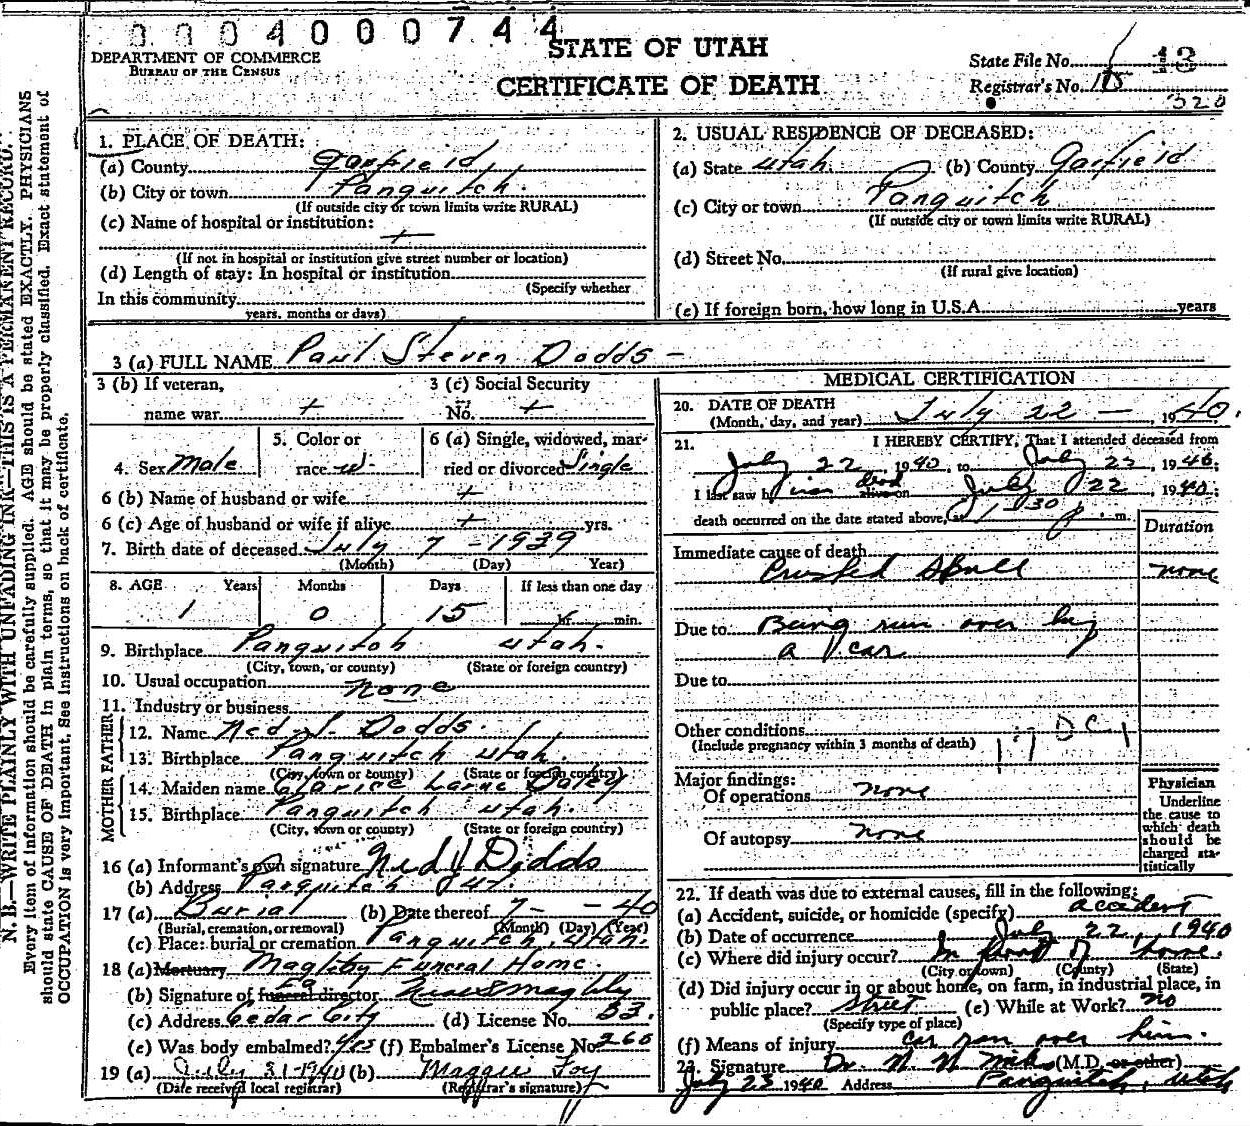 0004000744
STATE OF UTAH
DEPARTMENT OF COMMERCE
BUREAU OF THE CENSUS
CERTIFICATE OF DEATH
State File No. 13
Registrar's No. 175
320
N. B.—WRITE PLAINLY WITH UNFADING INK—THIS IS A PERMANENT RECORD.
Every item of information should be carefully supplied. AGE should be stated EXACTLY. PHYSICIANS
should state CAUSE OF DEATH in plain terms, so that it may be properly classified. Exact statement of
OCCUPATION is very important. See instructions on back of certificate.
1. PLACE OF DEATH:
(a) County Garfield
(b) City or town Panguitch.
(If outside city or town limits write RURAL)
(c) Name of hospital or institution:
+
(If not in hospital or institution give street number or location)
(d) Length of stay: In hospital or institution
(Specify whether
In this community
years, months or days)
2. USUAL RESIDENCE OF DECEASED:
(a) State Utah. (b) County Garfield
(c) City or town Panguitch
(If outside city or town limits write RURAL)
(d) Street No.
(If rural give location)
(e) If foreign born, how long in U.S.A. years
3 (a) FULL NAME Paul Steven Dodds -
3 (b) If veteran,
name war +
3 (c) Social Security
No. +
4. Sex Male
5. Color or
race W.
6 (a) Single, widowed, mar-
ried or divorced Single
6 (b) Name of husband or wife +
6 (c) Age of husband or wife if alive + yrs.
7. Birth date of deceased July 7 - 1939
(Month) (Day) Year)
8. AGE Years Months Days If less than one day
1 0 15 hr. min.
9. Birthplace Panguitch Utah.
(City, town, or county) (State or foreign country)
10. Usual occupation none
11. Industry or business
FATHER
12. Name Ned J. Dodds.
13. Birthplace Panguitch Utah.
(City, town or county) (State or foreign country)
MOTHER
14. Maiden name Clarice Larne Daley
15. Birthplace Panguitch Utah.
(City, town or county) (State or foreign country)
16 (a) Informant's own signature Ned J Dodds
(b) Address Panguitch Ut.
17 (a) Burial (b) Date thereof 7- -40
(Burial, cremation, or removal) (Month) (Day) (Year)
(c) Place: burial or cremation Panguitch, Utah.
18 (a) Mortuary Magleby Funeral Home.
(b) Signature of funeral director Magleby
(c) Address Cedar City (d) License No. 53.
(e) Was body embalmed? yes (f) Embalmer's License No. 260
19 (a) July 31-1940 (b) Maggie Foy
(Date received local registrar) (Registrar's signature)
MEDICAL CERTIFICATION
20. DATE OF DEATH
(Month, day, and year) July 22 - 1940.
21. I HEREBY CERTIFY, That I attended deceased from
July 22 1940, to July 22, 1940;
I last saw him dead alive on July 22, 1940;
death occurred on the date stated above, at 1:30 p. m.
Duration
Immediate cause of death
Crushed Skull none
Due to Being run over by
a car
Due to
Other conditions
(Include pregnancy within 3 months of death)
Major findings:
Of operations none
Of autopsy none
Physician
Underline
the cause to
which death
should be
charged sta-
tistically
22. If death was due to external causes, fill in the following:
(a) Accident, suicide, or homicide (specify) accident
(b) Date of occurrence July 22, 1940
(c) Where did injury occur? In front of home.
(City or town) (County) (State)
(d) Did injury occur in or about home, on farm, in industrial place, in
public place? street (e) While at Work? no
(Specify type of place)
(f) Means of injury car ran over him.
23. Signature Dr. (M.D. or other)
July 23 1940 Address Panguitch, Utah